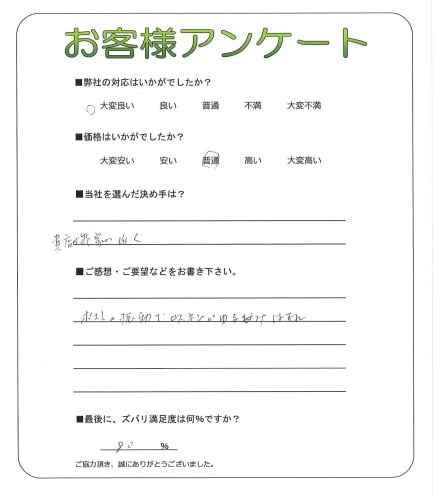 お客様アンケート
■弊社の対応はいかがでしたか？
大変良い 良い 普通 不満 大変不満
■価格はいかがでしたか？
大変安い 安い 普通 高い 大変高い
■当社を選んだ決め手は？
■ご感想・ご要望などをお書き下さい。
ポストの振動で
■最後に、ズバリ満足度は何%ですか？
90 %
ご協力頂き、誠にありがとうございました。